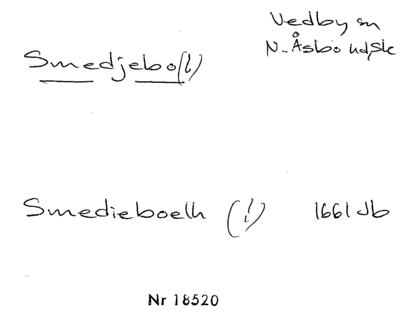 Vedby sn
N. Åsbo hd, Sk
Smedjebo(l)
Smedieboelh (!) 1661 Jb
Nr 18520